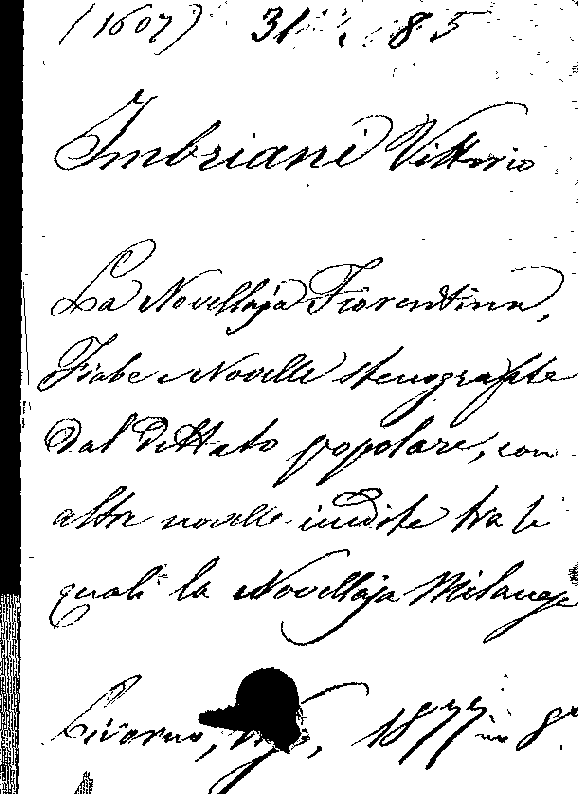 (1607) 31 85
Imbriani Vittorio
La Novellaja Fiorentina,
Fiabe e Novelle stenografate
dal dettato popolare, con
altre novelle inedite tra le
quali la Novellaja Milanese
Livorno, 1877 in 8°